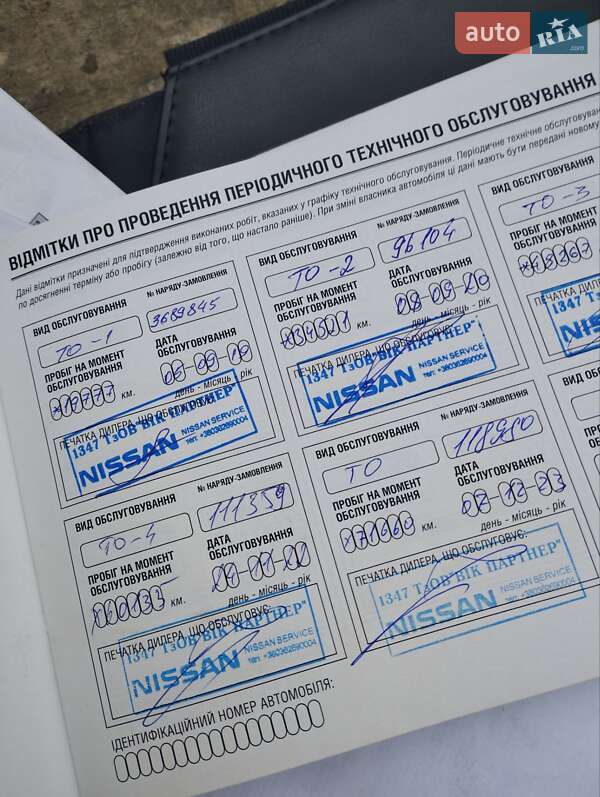 auto RIA .com
ВІДМІТКИ ПРО ПРОВЕДЕННЯ ПЕРІОДИЧНОГО ТЕХНІЧНОГО ОБСЛУГОВУВАННЯ
Дані відмітки призначені для підтвердження виконаних робіт, вказаних у графіку технічного обслуговування. Періодичне технічне обслуговуван
по досягненні терміну або пробігу (залежно від того, що настало раніше). При зміні власника автомобіля ці дані мають бути передані новому
ВИД ОБСЛУГОВУВАННЯ
№ НАРЯДУ-ЗАМОВЛЕННЯ
ТО-1
3689845
ПРОБІГ НА МОМЕНТ ОБСЛУГОВУВАННЯ
ДАТА ОБСЛУГОВУВАННЯ
19777 км.
05-09-19
день - місяць - рік
ПЕЧАТКА ДИЛЕРА, ЩО ОБСЛУГОВУЄ:
1347 ТзОВ"ВІК ПАРТНЕР"
NISSAN NISSAN SERVICE
тел: +380362690004
ВИД ОБСЛУГОВУВАННЯ
№ НАРЯДУ-ЗАМОВЛЕННЯ
ТО-2
96104
ПРОБІГ НА МОМЕНТ ОБСЛУГОВУВАННЯ
ДАТА ОБСЛУГОВУВАННЯ
км.
08-09-20
день - місяць - рік
ПЕЧАТКА ДИЛЕРА, ЩО ОБСЛУГОВУЄ:
1347 ТзОВ"ВІК ПАРТНЕР"
NISSAN NISSAN SERVICE
тел: +380362690004
ВИД ОБСЛУГОВУВАННЯ
ТО-3
ПРОБІГ НА МОМЕНТ ОБСЛУГОВУВАННЯ
ПЕЧАТКА ДИЛЕРА
1347 ТзОВ
ВИД ОБСЛУГОВУВАННЯ
№ НАРЯДУ-ЗАМОВЛЕННЯ
ТО-4
111359
ПРОБІГ НА МОМЕНТ ОБСЛУГОВУВАННЯ
ДАТА ОБСЛУГОВУВАННЯ
60135 км.
день - місяць - рік
ПЕЧАТКА ДИЛЕРА, ЩО ОБСЛУГОВУЄ:
1347 ТзОВ"ВІК ПАРТНЕР"
NISSAN NISSAN SERVICE
тел: +380362690004
ВИД ОБСЛУГОВУВАННЯ
№ НАРЯДУ-ЗАМОВЛЕННЯ
ТО
ПРОБІГ НА МОМЕНТ ОБСЛУГОВУВАННЯ
ДАТА ОБСЛУГОВУВАННЯ
71660 км.
день - місяць - рік
ПЕЧАТКА ДИЛЕРА, ЩО ОБСЛУГОВУЄ:
1347 ТзОВ"ВІК ПАРТНЕР"
NISSAN NISSAN SERVICE
тел: +380362690004
ІДЕНТИФІКАЦІЙНИЙ НОМЕР АВТОМОБІЛЯ: